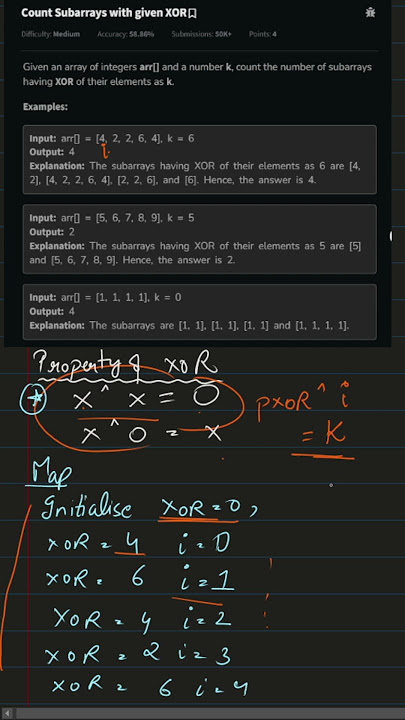 Count Subarrays with given XOR
Difficulty: Medium Accuracy: 58.86% Submissions: 50K+ Points: 4
Given an array of integers arr[] and a number k, count the number of subarrays
having XOR of their elements as k.
Examples:
Input: arr[] = [4, 2, 2, 6, 4], k = 6
Output: 4
i
Explanation: The subarrays having XOR of their elements as 6 are [4,
2], [4, 2, 2, 6, 4], [2, 2, 6], and [6]. Hence, the answer is 4.
Input: arr[] = [5, 6, 7, 8, 9], k = 5
Output: 2
Explanation: The subarrays having XOR of their elements as 5 are [5]
and [5, 6, 7, 8, 9]. Hence, the answer is 2.
Input: arr[] = [1, 1, 1, 1], k = 0
Output: 4
Explanation: The subarrays are [1, 1], [1, 1], [1, 1] and [1, 1, 1, 1].
Property of XOR
x ^ x = 0
x ^ 0 = x
pxoR ^ i
= K
Map
Initialise XOR = 0,
XOR = 4 i = 0
XOR = 6 i = 1
XOR = 4 i = 2
XOR = 2 i = 3
XOR = 6 i = 4